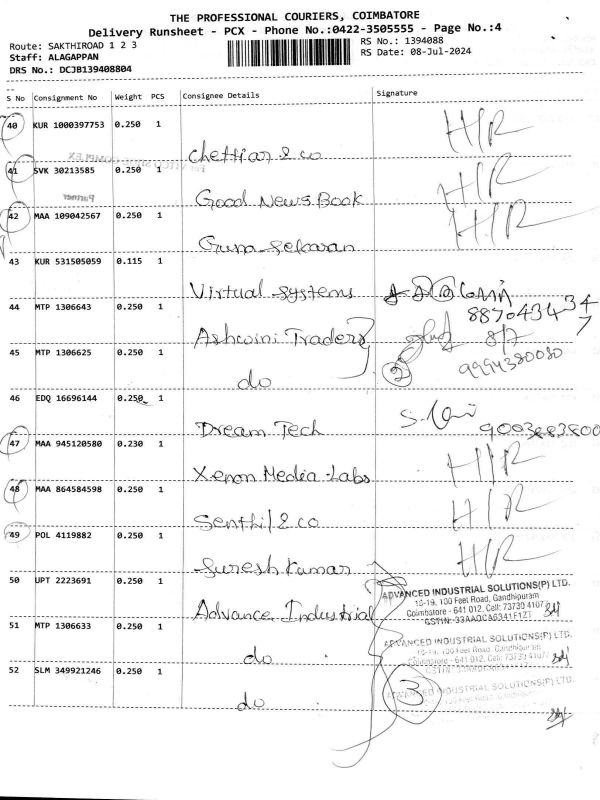 THE PROFESSIONAL COURIERS, COIMBATORE
Delivery Runsheet - PCX - Phone No.:0422-3505555 - Page No.:4
Route: SAKTHIROAD 1 2 3
RS No.: 1394088
Staff: ALAGAPPAN
RS Date: 08-Jul-2024
DRS No.: DCJB139408804
S No Consignment No Weight PCS Consignee Details Signature
40 KUR 1000397753 0.250 1 Chettiar & co H/R
41 SVK 30213585 0.250 1 Good News Book H/R
Partner
42 MAA 109042567 0.250 1 Guna Sekaran H/R
43 KUR 531505059 0.115 1 Virtual Systems
8870434347
44 MTP 1306643 0.250 1 Ashwini Traders 8/7
9994380080
45 MTP 1306625 0.250 1 do 2
46 EDQ 16696144 0.250 1 Dream Tech
47 MAA 945120580 0.230 1 Xenon Media-Labs H/R
48 MAA 864584598 0.250 1 Senthil & co H/R
49 POL 4119882 0.250 1 Suresh Kumar H/R
50 UPT 2223691 0.250 1 Advance Industrial
ADVANCED INDUSTRIAL SOLUTIONS(P) LTD.
100 Feet Road, Gandhipuram
Coimbatore - 641 012, Cell: 73739 41077
51 MTP 1306633 0.250 1 do
ADVANCED INDUSTRIAL SOLUTIONS(P) LTD.
52 SLM 349921246 0.250 1 do 3
ADVANCED INDUSTRIAL SOLUTIONS(P) LTD.